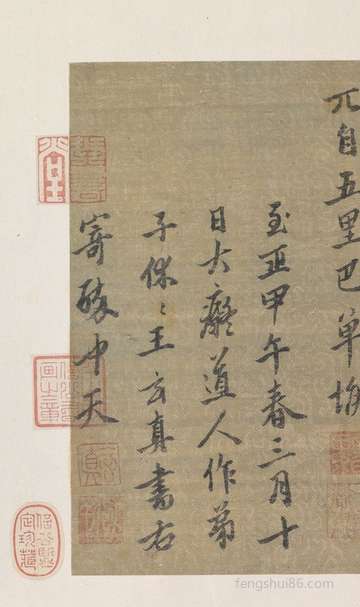 兀自五里巴單堠
至正甲午春三月十
日大癡道人作弟
子休〻王玄真書右
寄醉中天
fengshui86.com